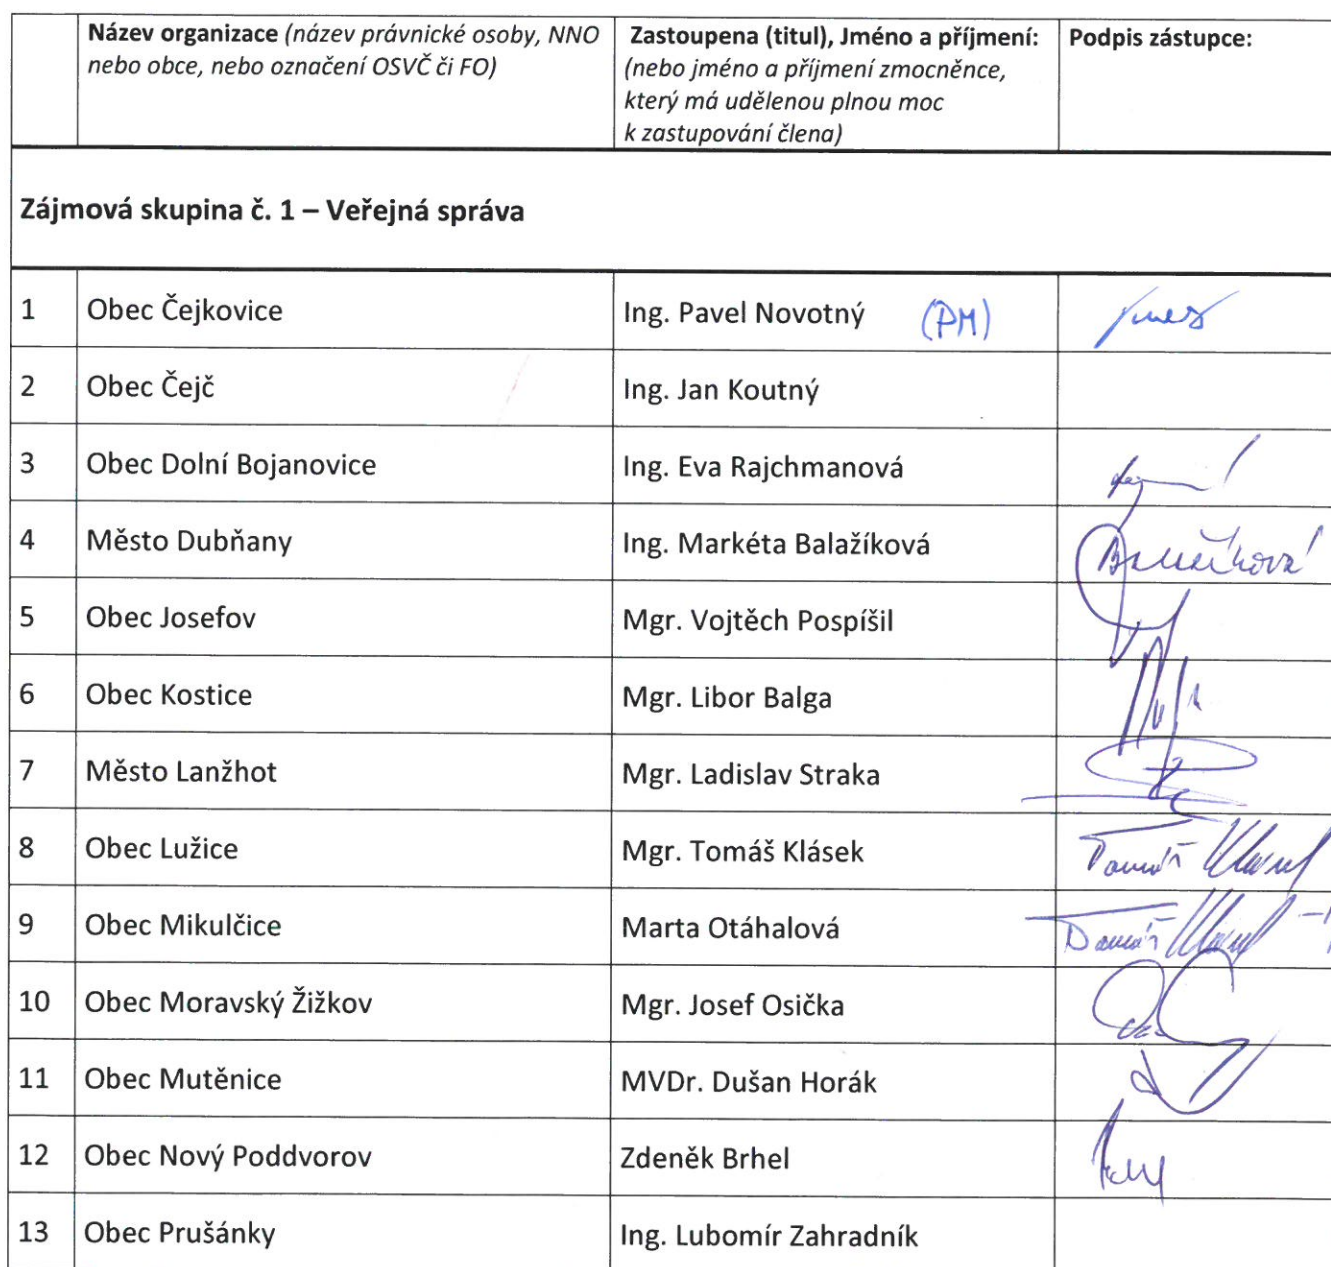 Název organizace (název právnické osoby, NNO
nebo obce, nebo označení OSVČ či FO)
Zastoupena (titul), Jméno a příjmení:
(nebo jméno a příjmení zmocněnce,
který má udělenou plnou moc
k zastupování člena)
Podpis zástupce:
Zájmová skupina č. 1 – Veřejná správa
1 Obec Čejkovice Ing. Pavel Novotný (PM)
2 Obec Čejč Ing. Jan Koutný
3 Obec Dolní Bojanovice Ing. Eva Rajchmanová
4 Město Dubňany Ing. Markéta Balažíková
5 Obec Josefov Mgr. Vojtěch Pospíšil
6 Obec Kostice Mgr. Libor Balga
7 Město Lanžhot Mgr. Ladislav Straka
8 Obec Lužice Mgr. Tomáš Klásek Tomáš
9 Obec Mikulčice Marta Otáhalová Tomáš
10 Obec Moravský Žižkov Mgr. Josef Osička
11 Obec Mutěnice MVDr. Dušan Horák
12 Obec Nový Poddvorov Zdeněk Brhel
13 Obec Prušánky Ing. Lubomír Zahradník